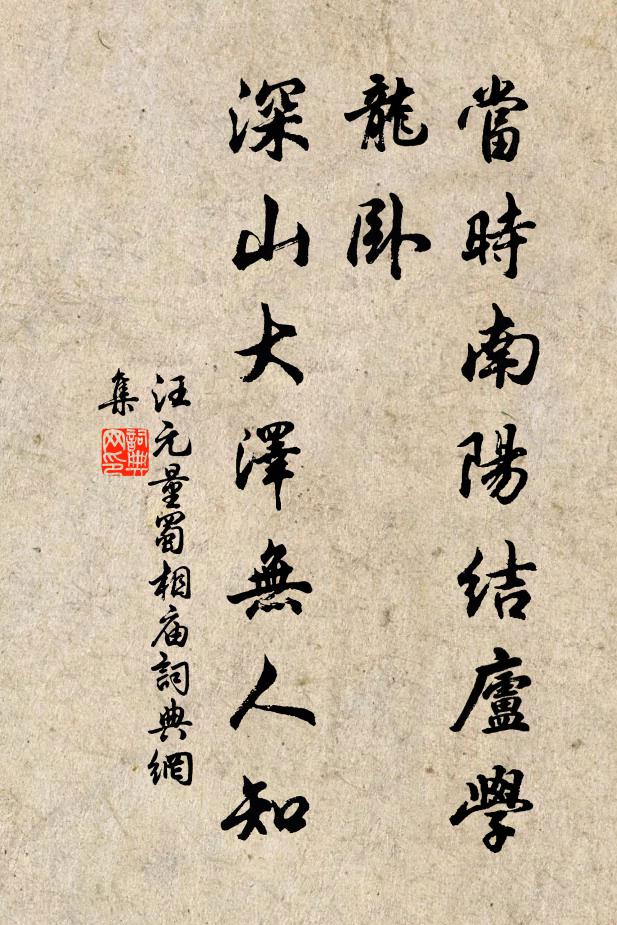 當時南陽結廬學
龍卧
深山大澤無人知
汪元量蜀相庙詞典網
集
詞典
网印